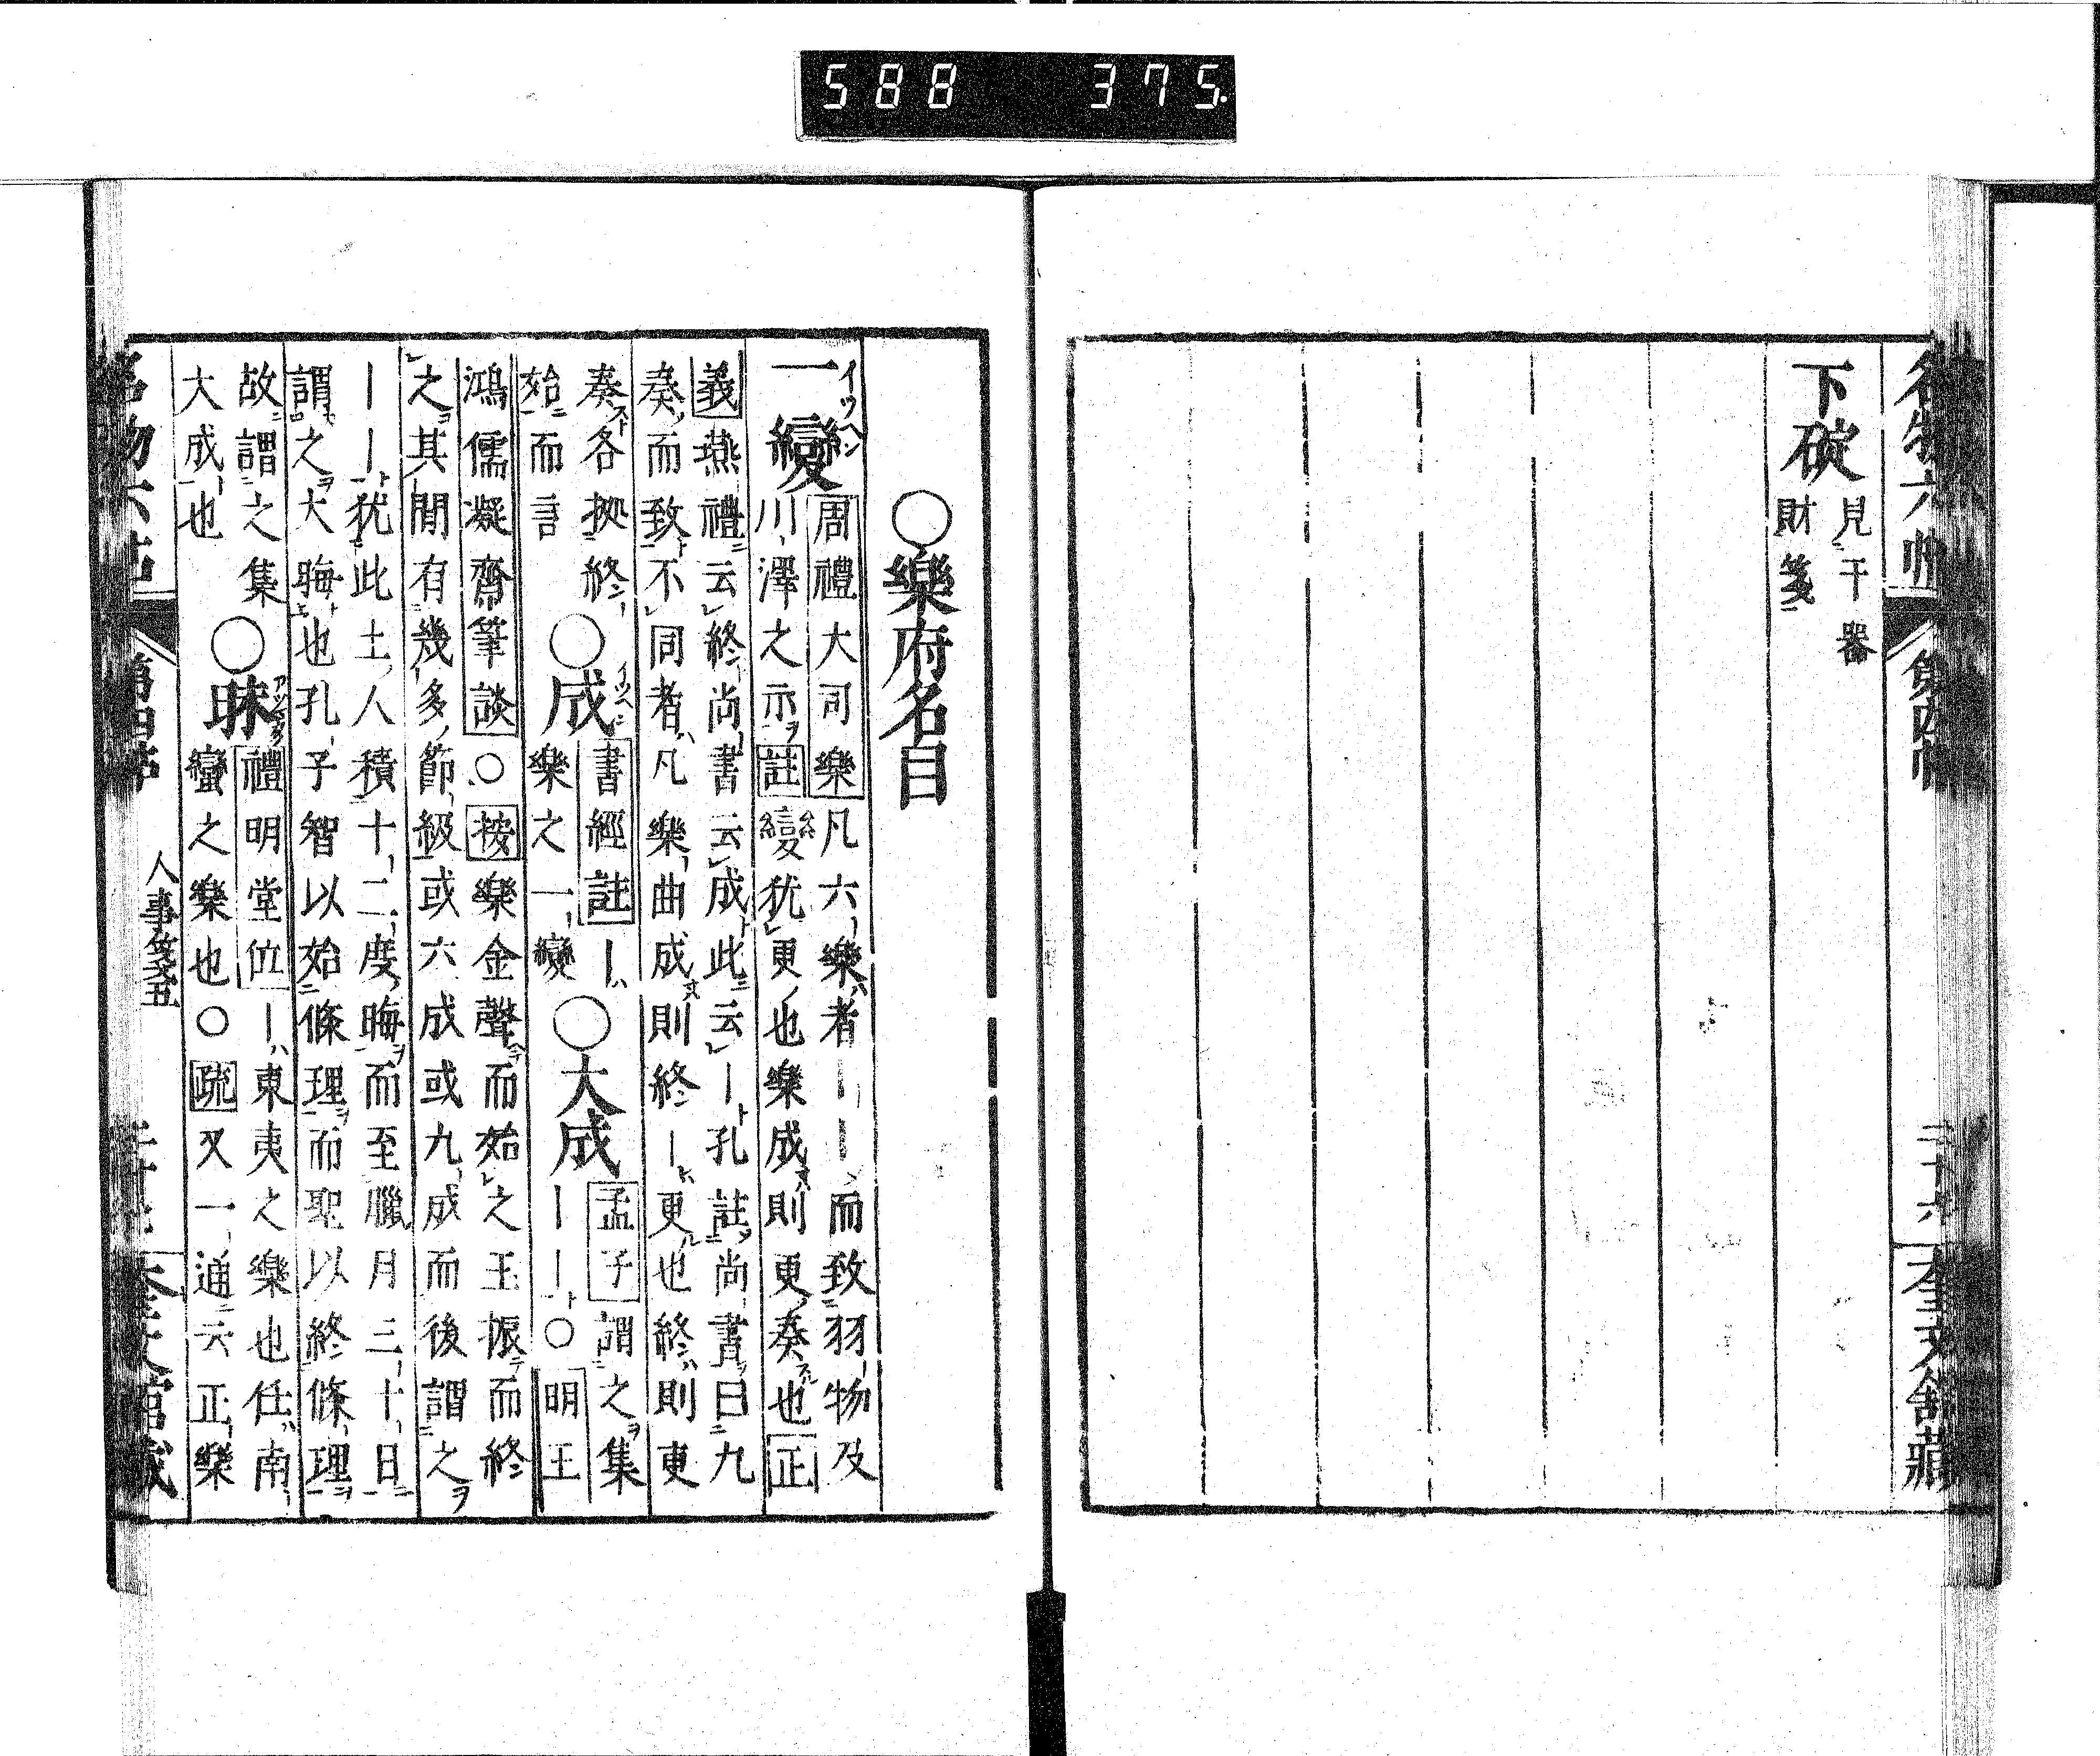 588 375.
名物六帖 第四帖 二十六 奎文館藏
下碇
見干器
財箋
○樂府名目
一變 イツヘン
周禮大司樂凡六樂者｜｜而致羽物及
川澤之示註變猶更也樂成則更奏也正
義燕禮云終尚書云成此云｜孔註尚書曰九
奏而致不同者凡樂曲成則終｜更也終則更
奏各㧞終○成 イツヘン 書經註｜○大成孟子謂之集
始而言 樂之一變 ｜｜○明王
鴻儒凝齋筆談○按樂金聲而始之玉振而終
之其間有幾多節級或六成或九成而後謂之
｜｜猶此土人積十二度晦而至臘月三十日
謂之大晦也孔子智以始條理而聖以終條理
故謂之集○昧 禮明堂位｜東夷之樂也任南
大成也 蠻之樂也○疏又一通云正樂
名物六帖 第四帖 人事箋五 奎文館藏